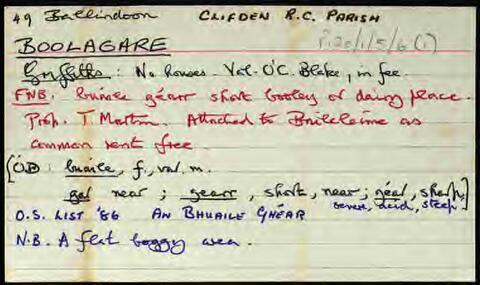 49 Ballindoon CLIFDEN R.C. PARISH
P.20/1/5/6 (1)
BOOLAGARE
Griffiths: No houses. Val. O'C. Blake, in fee.
FNB. buaile géarr short booley or dairy place.
Prop. T. Martin. Attached to Bunleleime as
common rent free.
[OD: buaile, f., val. m.
gar near; gearr, short, near; géar, sharp,
severe, acid, steep.]
O.S. LIST '86 AN BHUAILE GHÉAR
N.B. A flat boggy area.